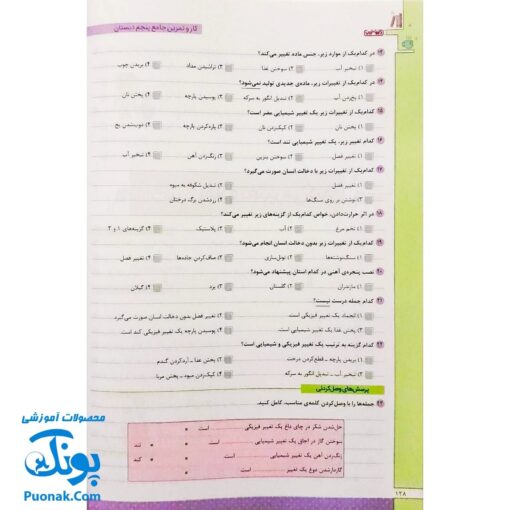 کار و تمرین جامع پنجم دبستان
۱۳ در کدام‌یک از موارد زیر، جنس ماده تغییر می‌کند؟
۱) تبخیر آب ۲) سوختن غذا ۳) تراشیدن مداد ۴) بریدن چوب
۱۴ در کدام‌یک از تغییرات زیر، ماده‌ی جدیدی تولید نمی‌شود؟
۱) یخ‌زدن آب ۲) تبدیل انگور به سرکه ۳) پوسیدن پارچه ۴) پختن نان
۱۵ کدام‌یک از تغییرات زیر یک تغییر شیمیایی مضر است؟
۱) پختن نان ۲) کپک‌زدن نان ۳) پاره‌کردن پارچه ۴) ذوب‌شدن یخ
۱۶ کدام تغییر زیر، یک تغییر شیمیایی تند است؟
۱) تغییر فصل ۲) سوختن بنزین ۳) زنگ‌زدن آهن ۴) تبخیر آب
۱۷ کدام‌یک از تغییرات زیر با دخالت انسان صورت می‌گیرد؟
۱) تغییر فصل ۲) تبدیل شکوفه به میوه
۳) نوشتن بر روی سنگ‌ها ۴) زردشدن برگ درختان
۱۸ در اثر حرارت‌دادن، خواص کدام‌یک از گزینه‌های زیر تغییر می‌کند؟
۱) تخم مرغ ۲) آب ۳) پلاستیک ۴) گزینه‌های ۱ و ۳
۱۹ کدام‌یک از تغییرات زیر بدون دخالت انسان انجام می‌شود؟
۱) سنگ‌نوشته‌ها ۲) تونل‌سازی ۳) صاف‌کردن جاده‌ها ۴) تغییر فصل
۲۰ نصب پنجره‌ی آهنی در کدام استان پیشنهاد می‌شود؟
۱) مازندران ۲) گلستان ۳) یزد ۴) گیلان
۲۱ کدام جمله درست نیست؟
۱) انجماد یک تغییر فیزیکی است. ۲) تغییر فصل بدون دخالت انسان صورت می‌گیرد
۳) پختن غذا یک تغییر شیمیایی است. ۴) پوسیدن پارچه یک تغییر فیزیکی کند است.
۲۲ کدام گزینه به ترتیب یک تغییر فیزیکی و شیمیایی است؟
۱) بریدن پارچه ـ قطع‌کردن درخت ۲) پختن غذا ـ آردکردن گندم
۳) تبخیر آب ـ تبدیل انگور به سرکه ۴) کپک‌زدن میوه ـ پختن مربا
پرسش‌های وصل‌کردنی
۲۳ جمله‌ها را با وصل‌کردن کلمه‌ی مناسب، کامل کنید.
حل‌شدن شکر در چای داغ یک تغییر فیزیکی ............ است
سوختن گاز در اجاق یک تغییر شیمیایی ............ است تند
زنگ‌زدن آهن یک تغییر شیمیایی ............ است کند
گازدارشدن دوغ یک تغییر ............ است
۱۲۸
محصولات آموزشی
پونک
Puonak.Com